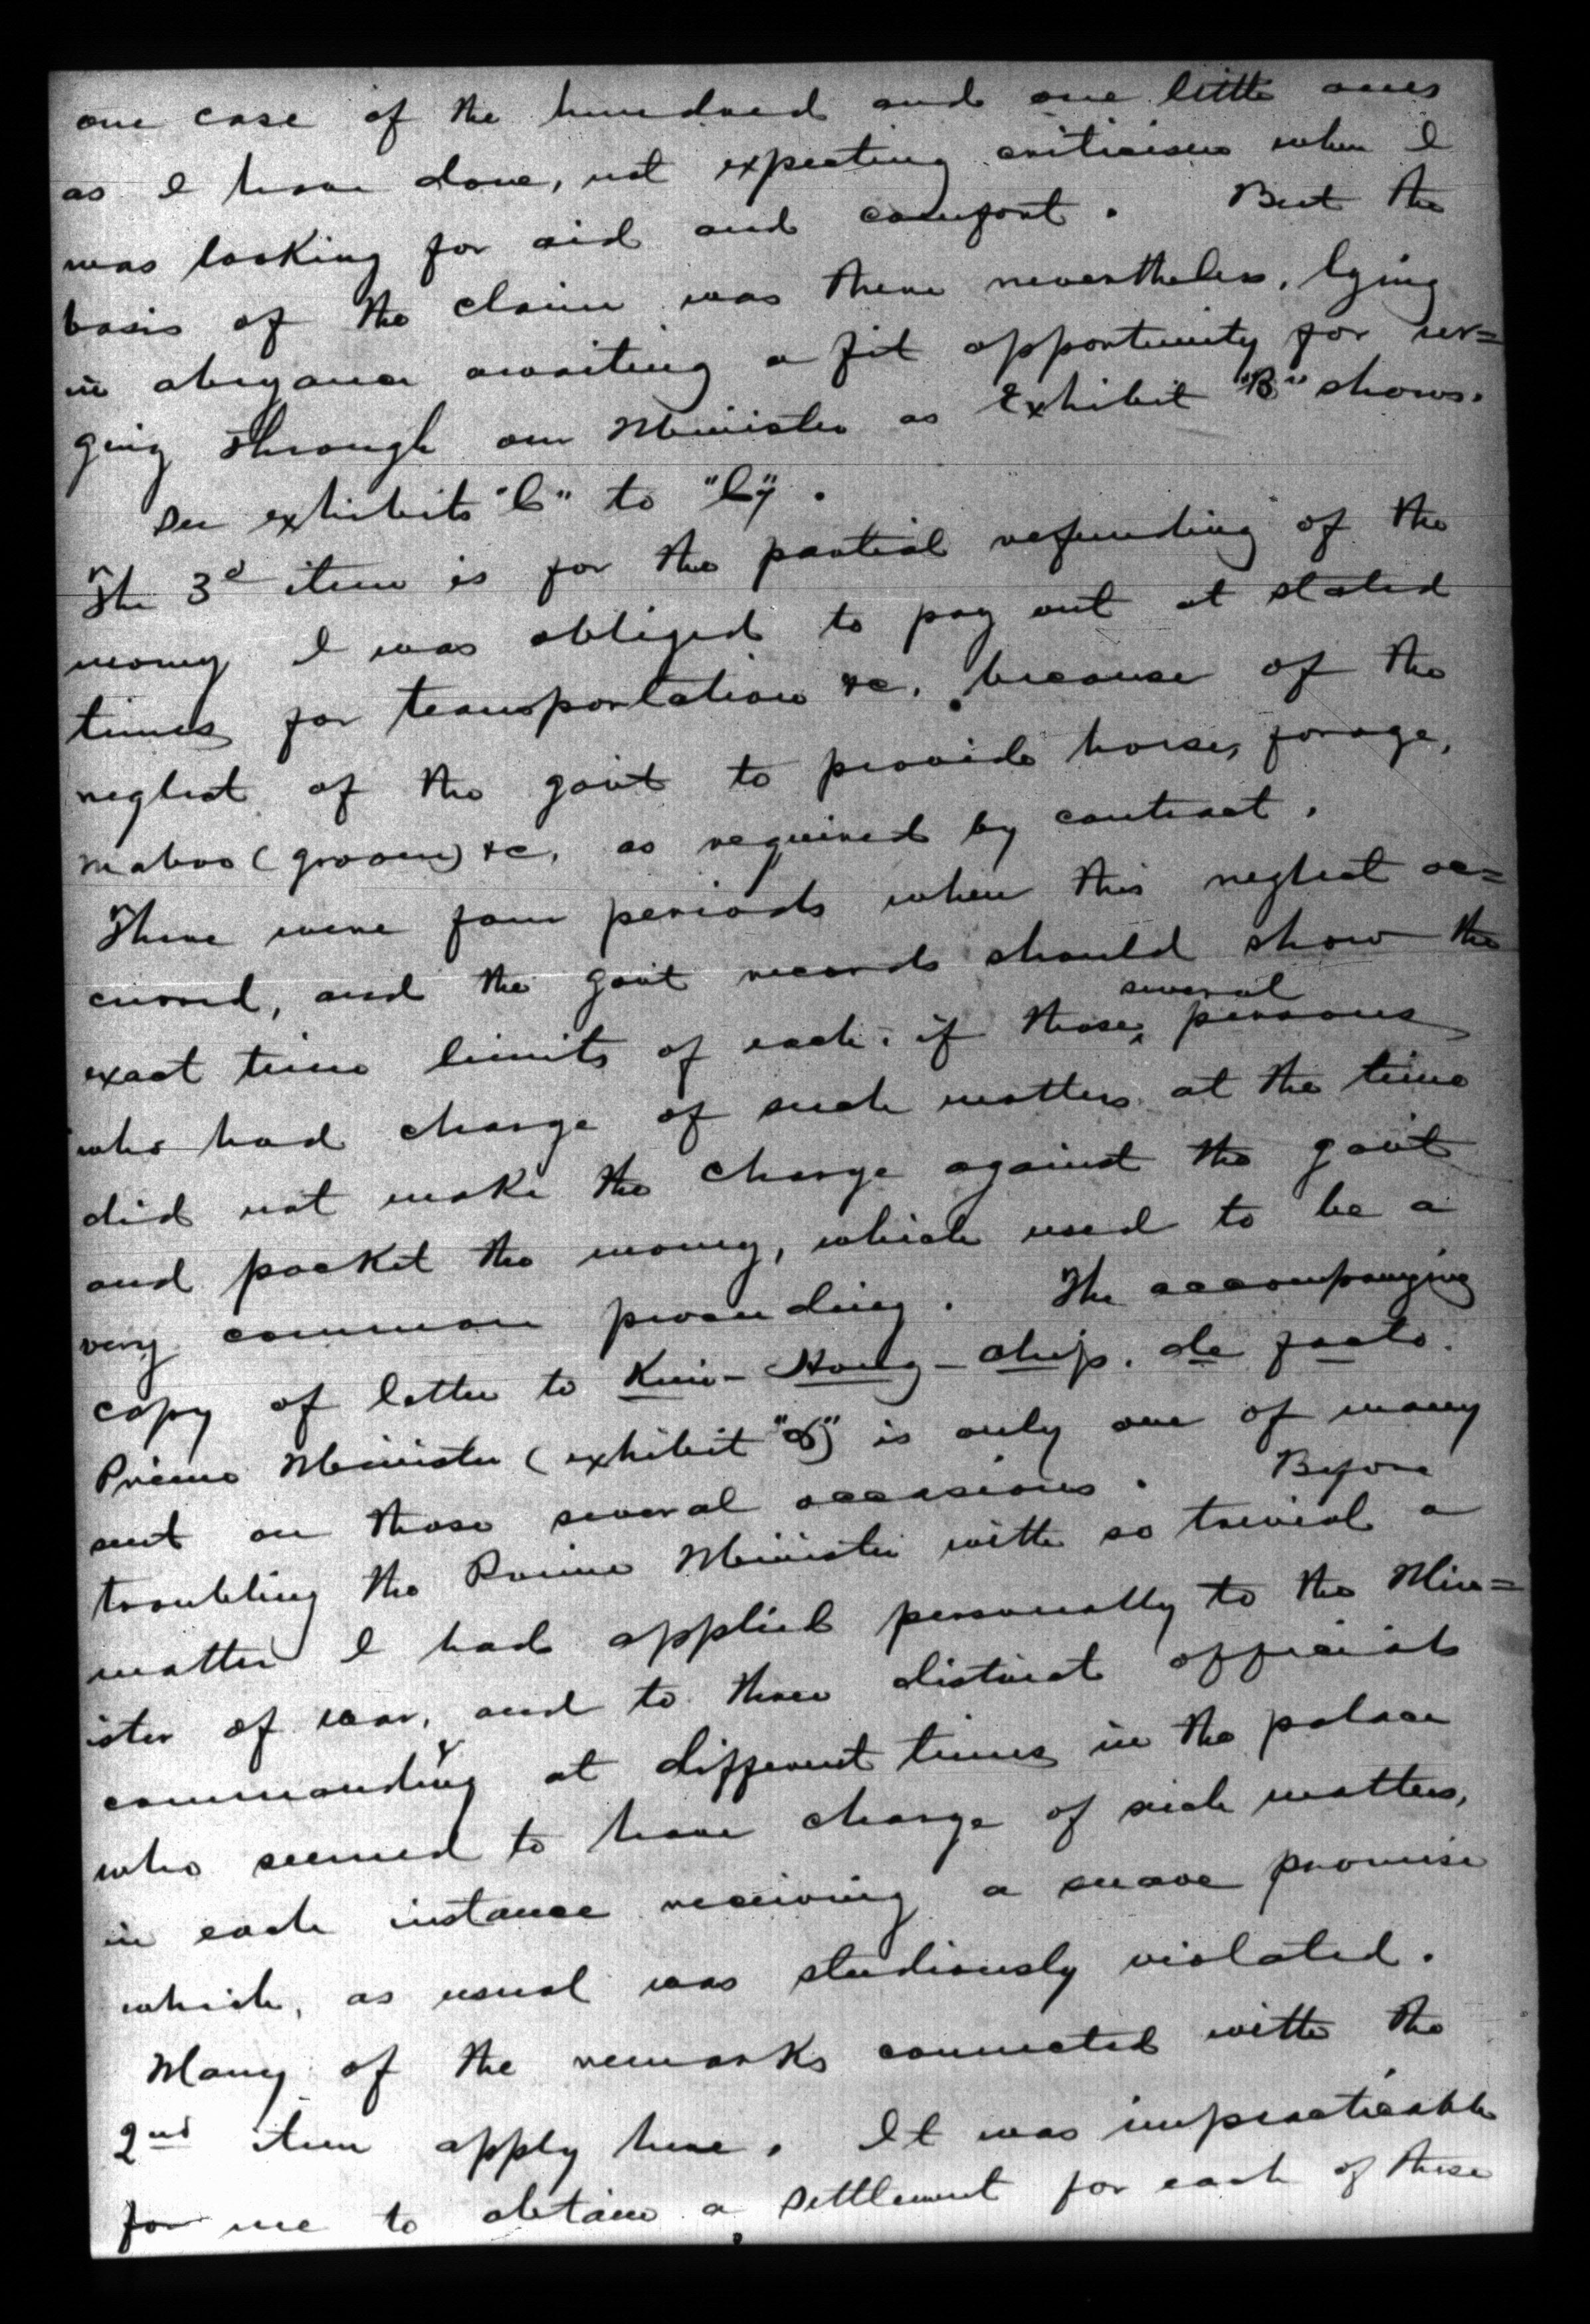 one case of the hundred and one little ones
as I have done, not expecting criticism when I
was looking for aid and comfort. But the
basis of the claim was there nevertheless, lying
in abeyance awaiting a fit opportunity for ur=
ging through our Minister as Exhibit "B" shows.
See exhibits "C" to
The 3d item is for the partial refunding of the
money I was obliged to pay out at stated
times for transportation &c. because of the
neglect of the gov't to provide horse, forage,
maboo (groom) &c, as required by contract.
There were four periods when this neglect oc=
curred, and the gov't records should show the
exact time limits of each, if those several persons
who had charge of such matters at the time
did not make the charge against the gov't
and pocket the money, which used to be a
very common proceeding. The accompanying
copy of letter to Kim-Hong-Chip, de facto
Prime Minister (exhibit is only one of many
sent on those several occasions. Before
troubling the Prime Minister with so trivial a
matter I had applied personally to the Min=
ister of war, and to three distinct officials
commanding at different times in the palace
who seemed to have charge of such matters,
in each instance receiving a suave promise
which, as usual was studiously violated.
Many of the remarks connected with the
2nd item apply here. It was impracticable
for me to obtain a settlement for each of these